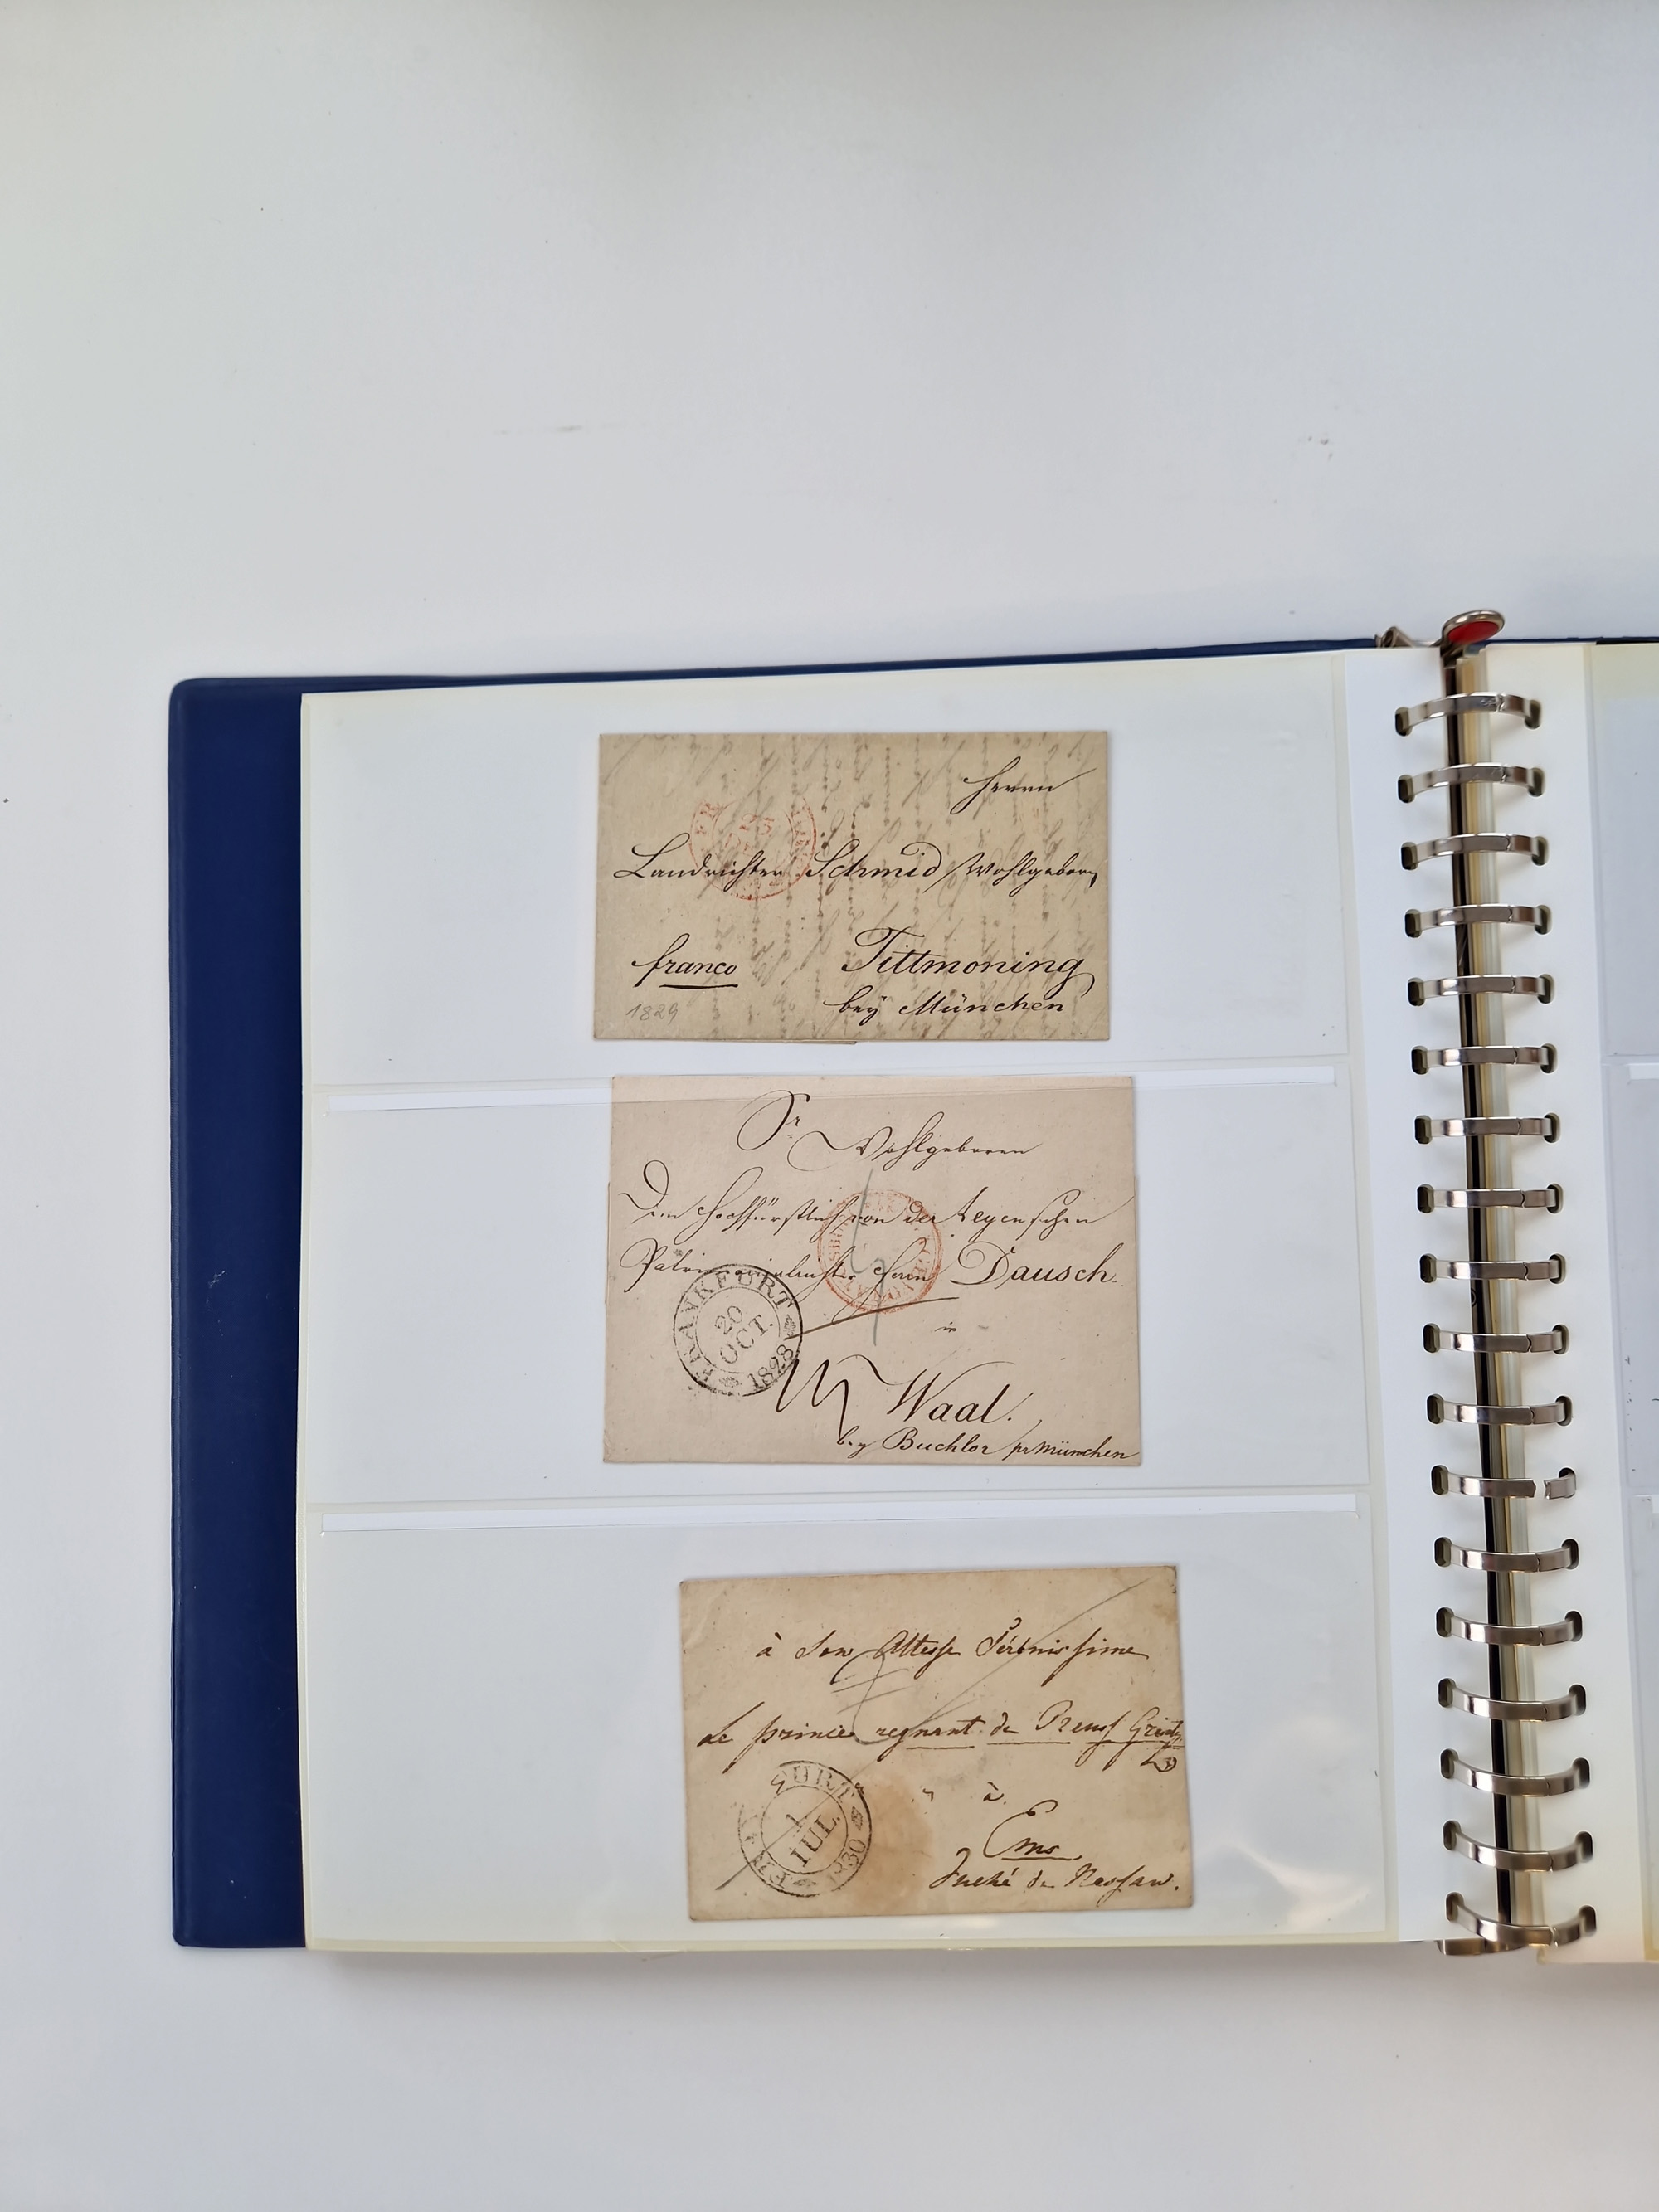 Herrn
Landrichter Schmid Wohlgeborn
franco
Tittmoning
bey München
1829
Sr.
Wohlgeboren
Dem Hochfürstlich von der Leyenschen
Herrn Dausch.
in
Waal.
bey Buchloe pr München
FRANKFURT
20
OCT.
1828
à Son Altesse Sérénissime
Le prince regnant de Reuss Greitz
à
Ems.
Duché de Nassau.
FURT
1
IUL.
1830